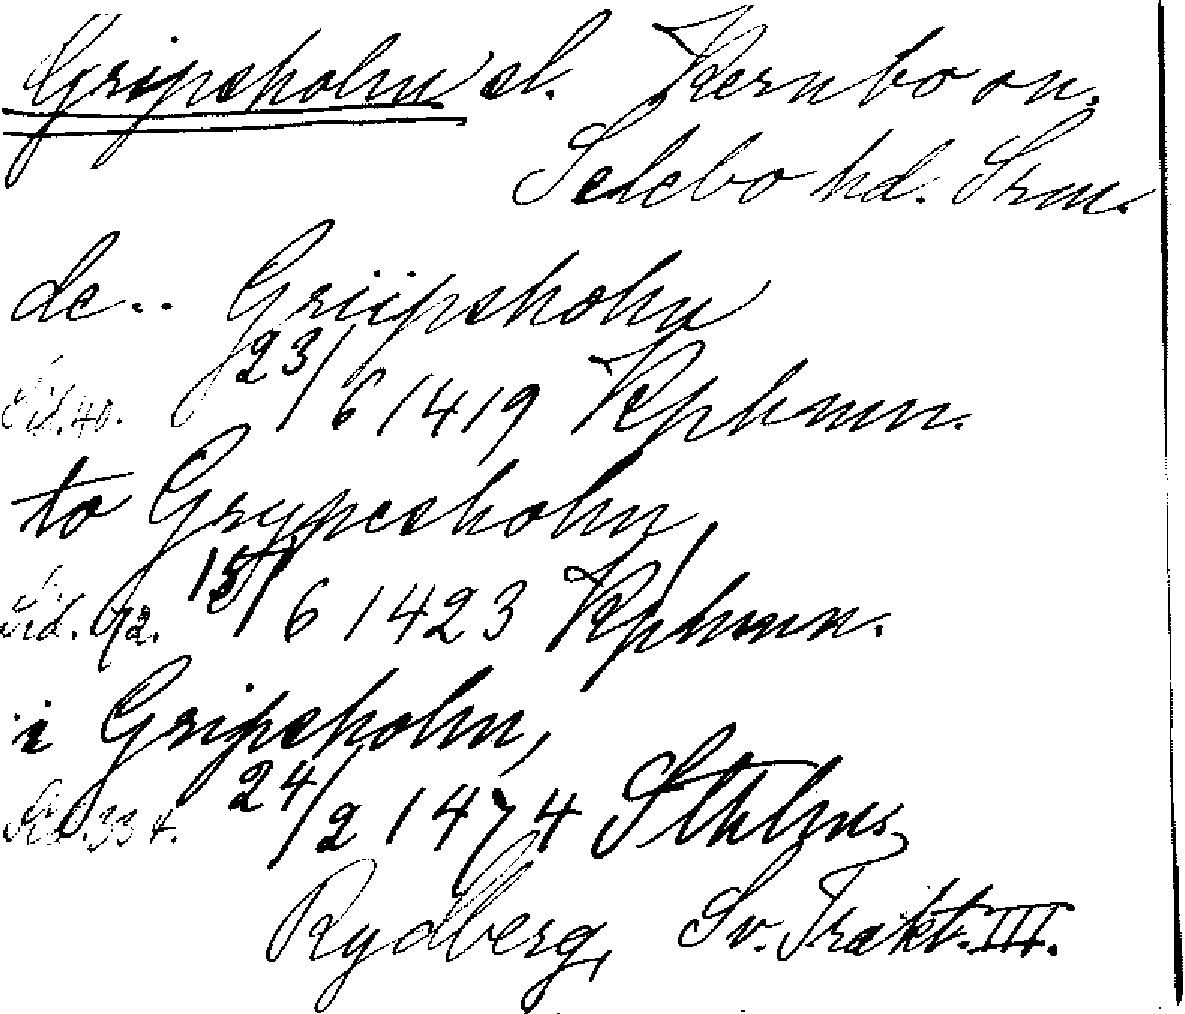 Gripsholm sl. Kernbo sn.
Selebo hd. Srm.
de.. Griipsholm
Sid. 40. 23/6 1419 Kphmn.
to Grypesholm,
Sid. 92. 15/6 1423 Kphmn.
i Gripsholm,
Sid. 334. 24/2 1474 Sthlm.
Rydberg, Sv. Trakt. III.